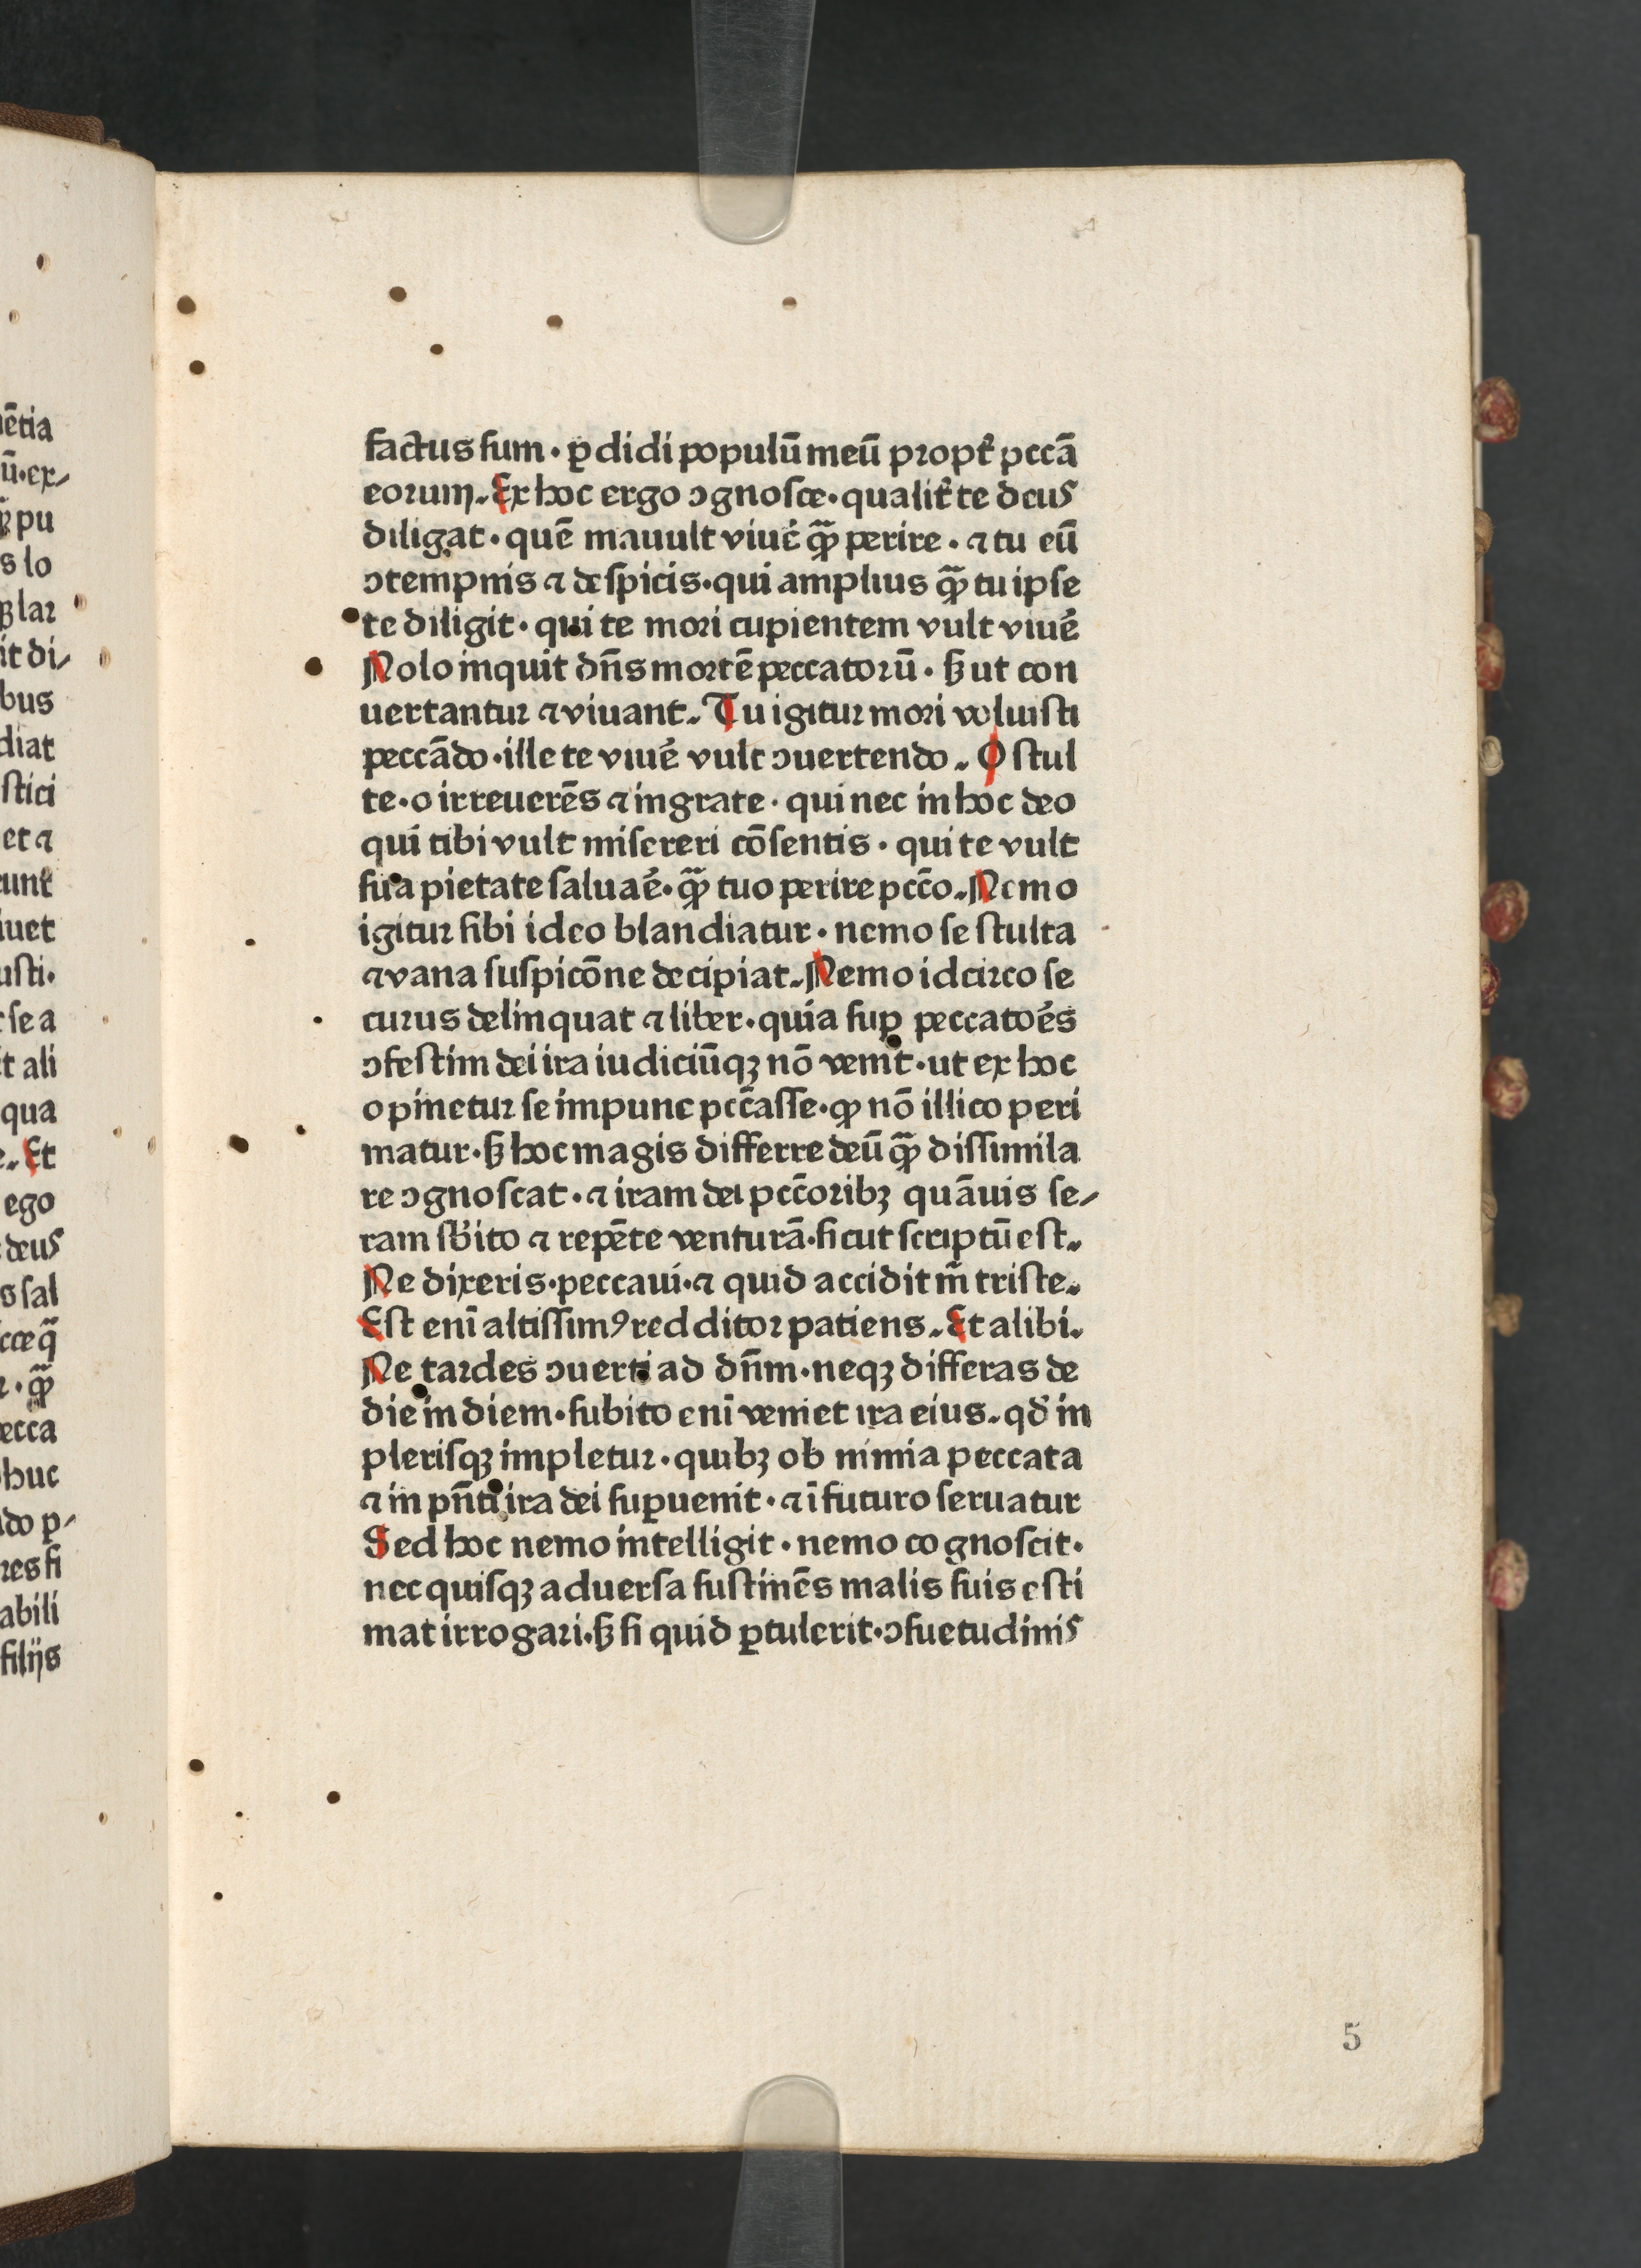 factus ſum · ꝑdidi populū meū propť pccā
eorum. Ex hoc ergo ↄgnoſce · qualiť te deus
diligat · quē mauult viuẻ ꝙ̄ perire · ⁊ tu eū
ↄtempnis ⁊ deſpicis · qui amplius ꝙ̄ tu ipſe
te diligit · qui te mori cupientem vult viuẻ
Nolo inquit dn̄s mortē peccatorū · ſꝫ ut con
uertantur ⁊ viuant. Tu igitur mori voluiſti
peccādo · ille te viuẻ vult ↄuertendo. O ſtul
te · o irreuerēs ⁊ ingrate · qui nec in hoc deo
qui tibi vult miſereri cōſentis · qui te vult
ſua pietate ſaluaẻ · ꝙ̄ tuo perire pcc̄o. Nemo
igitur ſibi ideo blandiatur · nemo ſe ſtulta
⁊ vana ſuſpicōne decipiat. Nemo idcirco ſe
curus delinquat ⁊ liber · quia ſuꝑ peccatoẻs
ↄfeſtim dei ira iudiciūqꝫ nō venit · ut ex hoc
opinetur ſe impune pcc̄aſſe · ꝙ nō illico peri
matur · ſꝫ hoc magis differre deū ꝙ̄ diſſimila
re ↄgnoſcat · ⁊ iram dei pcc̄oribꝫ quāuis ſe⸗
ram ſb̓ito ⁊ repēte venturā · ſicut ſcriptū eſt.
Ne dixeris · peccaui · ⁊ quid accidit m̄ triſte.
Eſt enī altiſſimꝰ redditor patiens. Et alibi.
Ne tardes ↄuerti ad dn̄m · neqꝫ differas de
die in diem · ſubito enī veniet ira eius. qd̓ in
pleriſqꝫ impletur · quibꝫ ob nimia peccata
⁊ in pn̄ti ira dei ſuꝑuenit · ⁊ ī futuro ſeruatur
Sed hoc nemo intelligit · nemo cognoſcit ·
nec quiſqꝫ aduerſa ſuſtinēs malis ſuis eſti
mat irrogari · ſꝫ ſi quid ꝑtulerit · ↄſuetudinis
5